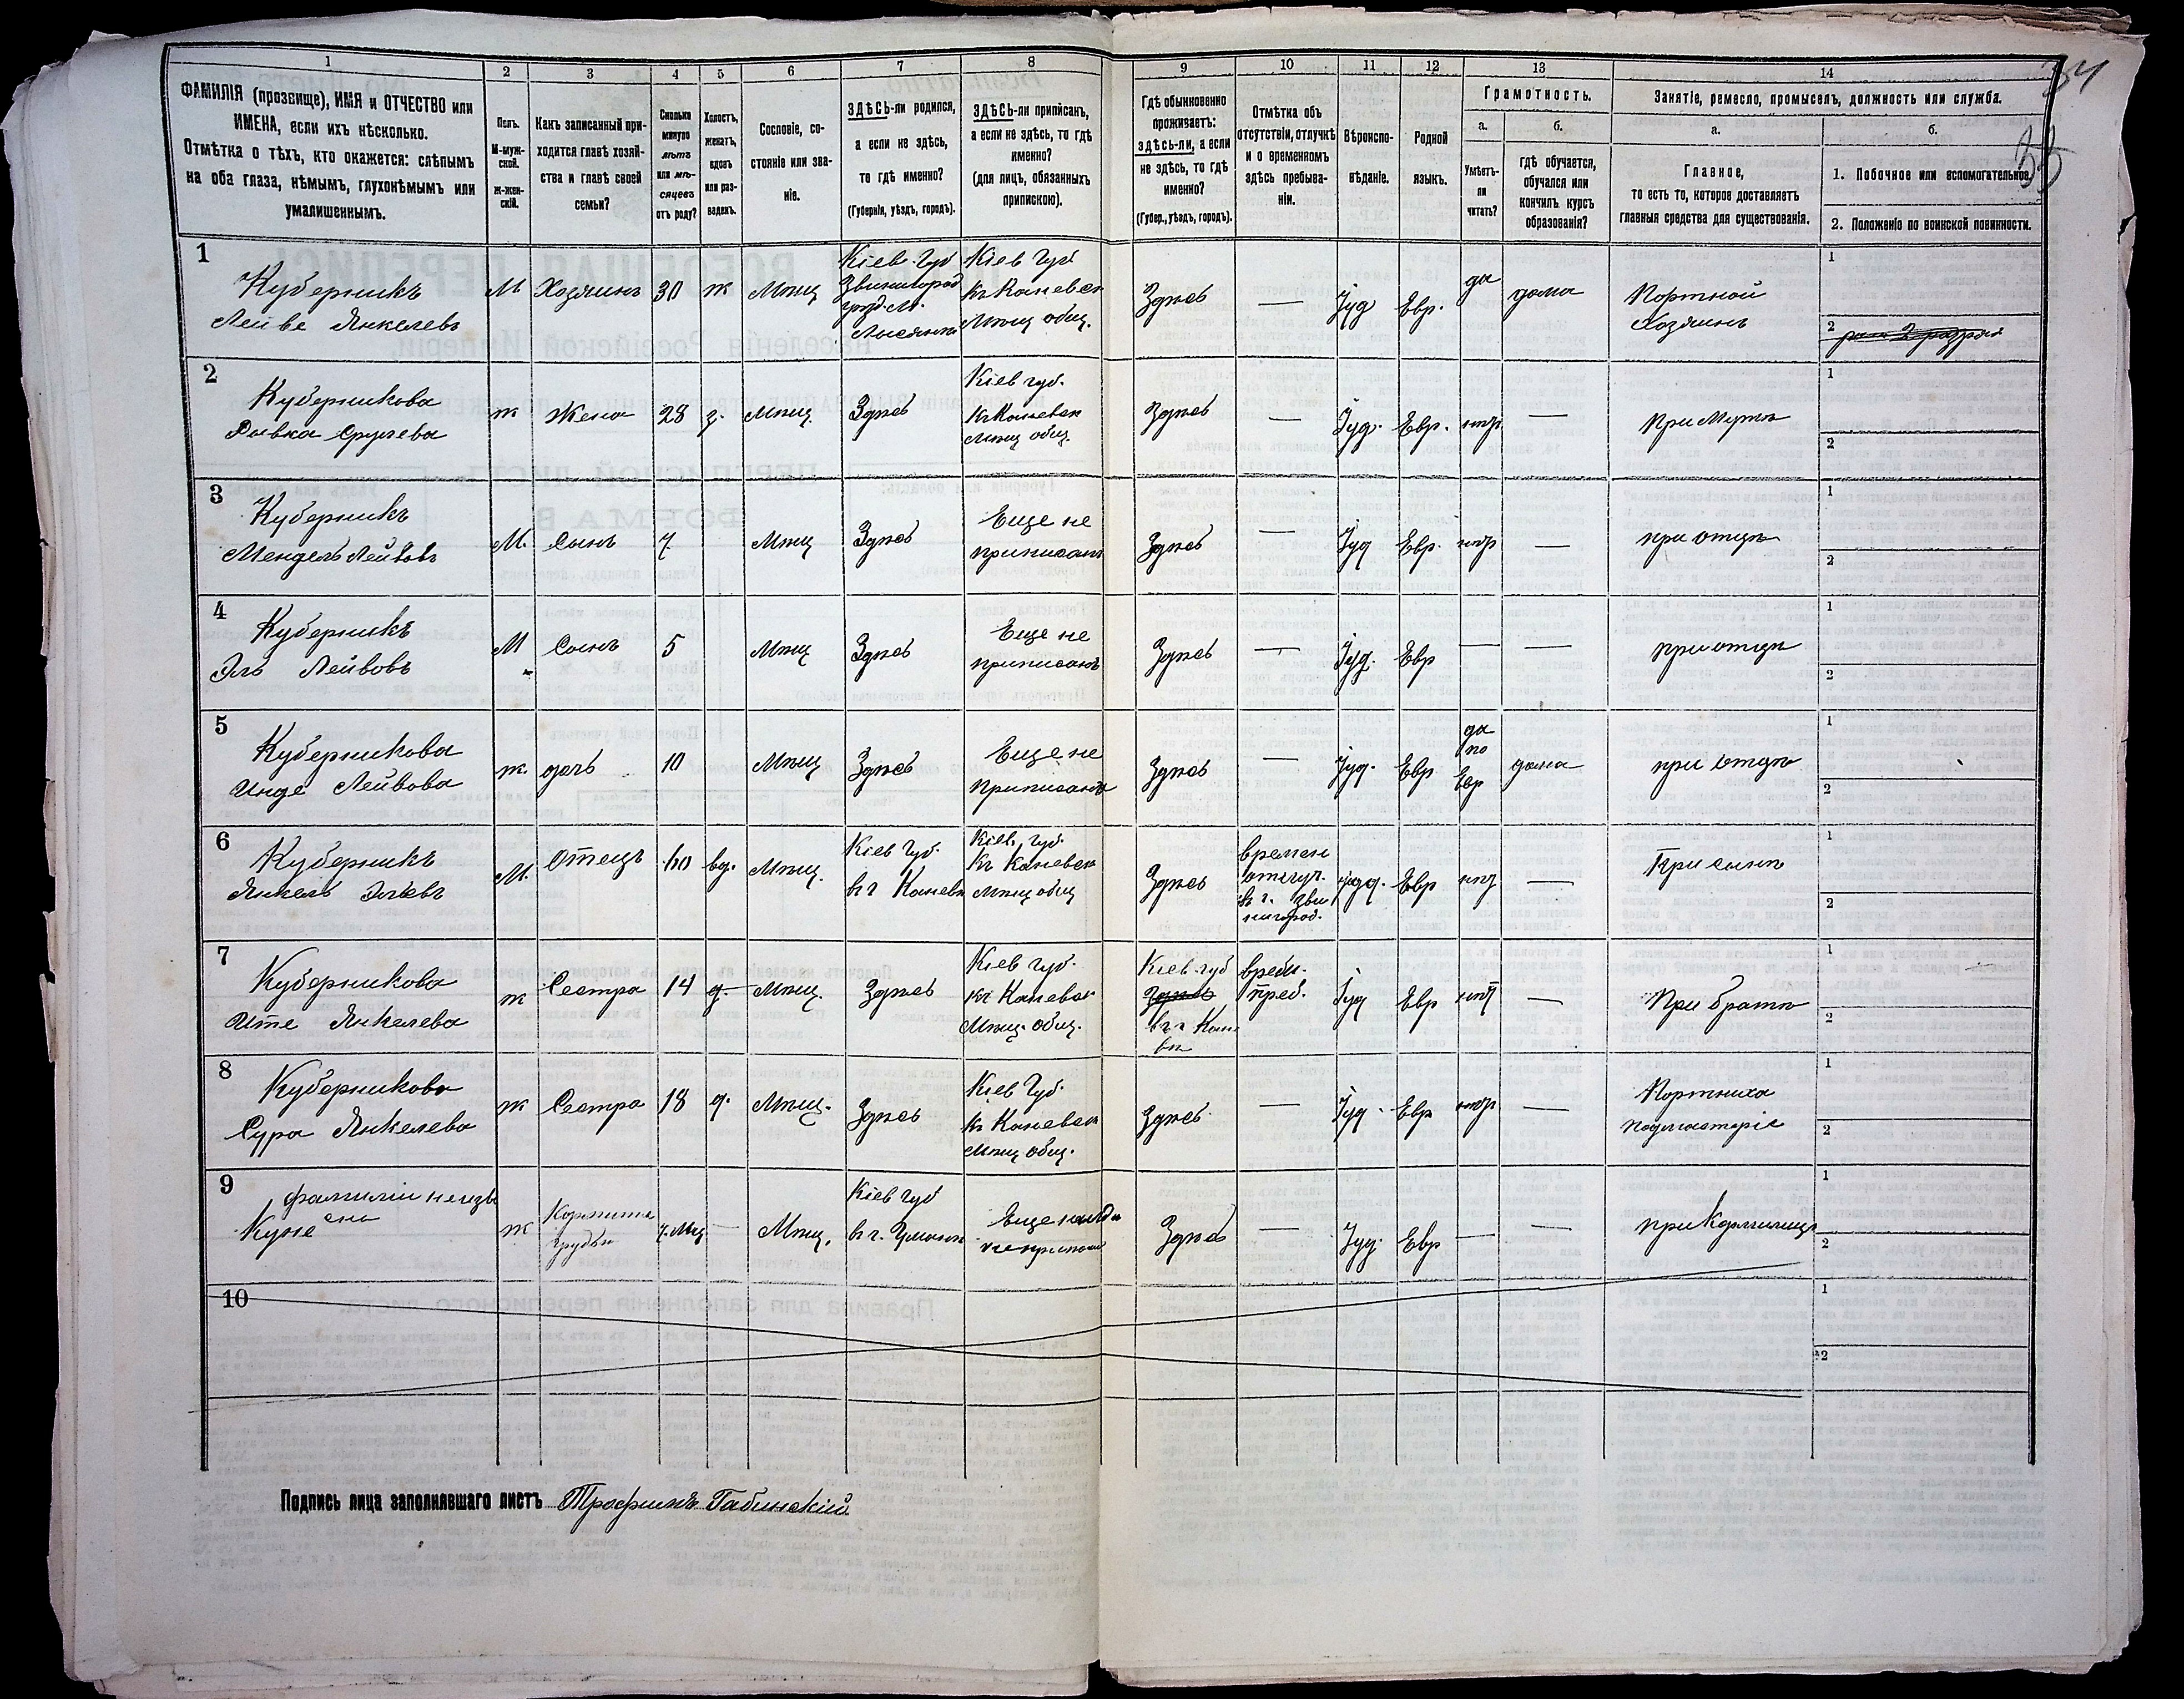 34
35
1
2
3
4
5
6
7
8
9
10
11
12
13
14
ФАМИЛІЯ (прозвище), ИМЯ и ОТЧЕСТВО или
ИМЕНА, если ихъ нѣсколько.
Отмѣтка о тѣхъ, кто окажется: слѣпымъ
на оба глаза, нѣмымъ, глухонѣмымъ или
умалишеннымъ.
Полъ.
М-муж-
ской.
ж-жен-
скій.
Какъ записанный при-
ходится главѣ хозяй-
ства и главѣ своей
семьи?
Сколько
минуло
лѣтъ
или мѣ-
сяцевъ
отъ роду?
Холостъ,
женатъ,
вдовъ
или раз-
веденъ.
Сословіе, со-
стояніе или зва-
ніе.
ЗДѢСЬ-ли родился,
а если не здѣсь,
то гдѣ именно?
(Губернія, уѣздъ, городъ).
ЗДѢСЬ-ли приписанъ,
а если не здѣсь, то гдѣ
именно?
(для лицъ, обязанныхъ
припискою).
Гдѣ обыкновенно
проживаетъ:
здѣсь-ли, а если
не здѣсь, то гдѣ
именно?
(Губер., уѣздъ, городъ).
Отмѣтка объ
отсутствіи, отлучкѣ
и о временномъ
здѣсь пребыва-
ніи.
Вѣроиспо-
вѣданіе.
Родной
языкъ.
Грамотность.
а.
Умѣетъ-
ли
читать?
б.
Гдѣ обучается,
обучался или
кончилъ курсъ
образованія?
Занятіе, ремесло, промыселъ, должность или служба.
а.
Главное,
то есть то, которое доставляетъ
главныя средства для существованія.
б.
1. Побочное или вспомогательное.
2. Положеніе по воинской повинности.
1
Куберникъ
Лейве Янкелевъ
М
Хозяинъ
30
ж
Мѣщ
Кіев. Губ
Звенигород
уезд. М.
Лысянкѣ
Кіев Губ
Къ Каневск
Мѣщ общ.
Здѣсь
—
Іуд
Евр.
да
дома
Портной
Хозяинъ
1
2
2
Куберникова
Рывка Срулева
ж
Жена
28
з.
Мѣщ.
Здѣсь
Кіев губ.
Къ Каневск
Мѣщ общ.
Здѣсь
—
Іуд.
Евр.
нѣт
—
При Мужѣ
1
2
3
Куберникъ
Мендель Лейвовъ
М.
Сынъ
7
Мѣщ
Здѣсь
Еще не
приписанъ
Здѣсь
—
Іуд
Евр.
нѣт
—
при отцѣ
1
2
4
Куберникъ
Эль Лейвовъ
М
Сынъ
5
Мѣщ
Здѣсь
Еще не
приписанъ
Здѣсь
—
Іуд.
Евр
—
—
при отцѣ
1
2
5
Куберникова
Лейвова
ж.
дочь
10
Мѣщ
Здѣсь
Еще не
приписана
Здѣсь
—
Іуд.
Евр
да
по
Евр
дома
при отцѣ
1
2
6
Куберникъ
Янкель Эльевъ
М.
Отецъ
60
вд.
Мѣщ.
Кіев Губ.
въ г Каневѣ
Кіев. губ.
Къ Каневск
Мѣщ общ
Здѣсь
времен
отлуч.
въ г. Зве
нигород.
Іуд.
Евр
нѣт
—
При сынѣ
1
2
7
Куберникова
Ите Янкелева
ж
Сестра
14
д.
Мѣщ.
Здѣсь
Кіев губ.
къ Каневск
Мѣщ. общ.
Кіев. губ
Здѣсь
въ г Кане
вѣ
врем.
преб.
Іуд
Евр
нѣт
—
При братѣ
1
2
8
Куберникова
Сура Янкелева
ж
Сестра
18
д.
Мѣщ.
Здѣсь
Кіев Губ.
Къ Каневск
Мѣщ общ.
Здѣсь
—
Іуд.
Евр
нѣт
—
Портниха
подмастеріе
1
2
9
фамиліи неизвѣ
сна
Куне
ж
грудью
7. Мѣс
—
Мѣщ.
Кіев губ
въ г. Умани
Еще
не приписана
Здѣсь
—
Іуд.
Евр
—
—
при Кормилицѣ
1
2
10
1
2
Подпись лица заполнявшаго листъ Трофимъ Габинскій